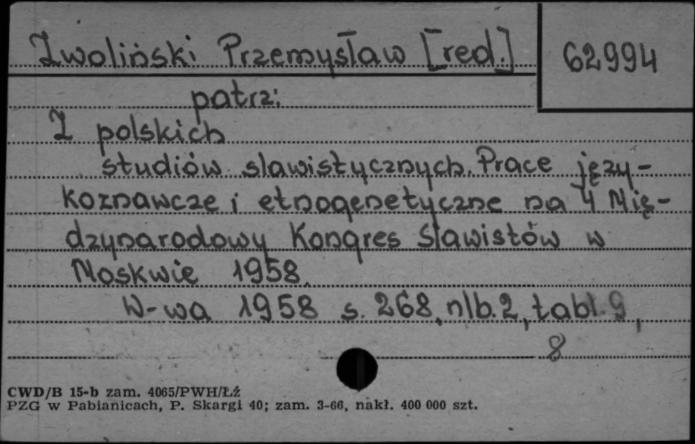 Zwoliński Przemysław [red.]
62994
patrz:
Z polskich
studiów slawistycznych. Prace języ-
koznawcze i etnogenetyczne na 4 Mię-
dzynarodowy Kongres Slawistów w
Moskwie 1958.
W-wa 1958 s. 268, nlb. 2, tabl. 9,
8
CWD/B 15-b zam. 4065/PWH/Łź
PZG w Pabianicach, P. Skargi 40; zam. 3-66, nakł. 400 000 szt.